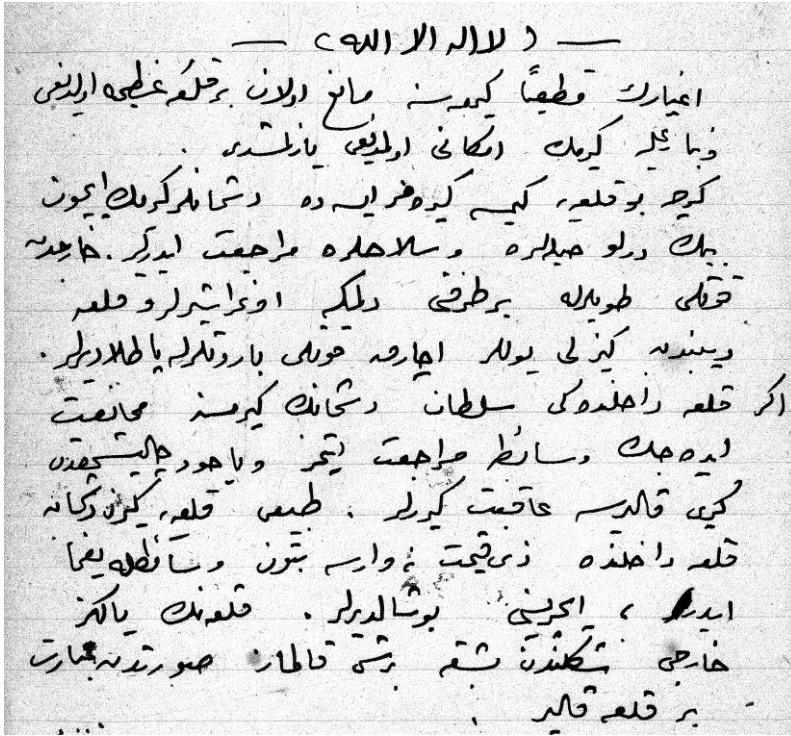 — ( لا اله الا الله ) —
اغيارك قطعيًا كيرمسنه مانع اولان بر قلعۀ عظيمه اولديغى
وبناءً عليه كيرمك امكانى اولمديغى يازلمشدى .
كرچه بو قلعه‌يه كيمسه كيره‌مز ايسه ده دشمانلر كيرمك ايچون
بيك درلو حيله‌لره وسلاحلره مراجعت ايدرلر . خارجدن
قوتلى طوپلرله بر طرفنى دلمكه اوغراشيرلر و قلعه
ديبندن كيزلى يوللر آچارق قوتلى باروتلرله پاطلاديرلر .
اكر قلعه داخلنده‌كى سلطان دشمانك كيرمسنه ممانعت
ايده‌جك وسائطه مراجعت ايتمز وياخود چاليشمقدن
كيرى قاليرسه عاقبت كيررلر . طبيعى قلعه‌يه كيرن دشمان
قلعه داخلنده ذى قيمت نه وارسه بتون وسائطيله يغما
ايدرلر ، ايچريسنى بوشالديرلر . قلعه‌نك يالكز
خارجى شكلندن بشقه برشى قالماز صورتدن عبارت
بر قلعه قالير .